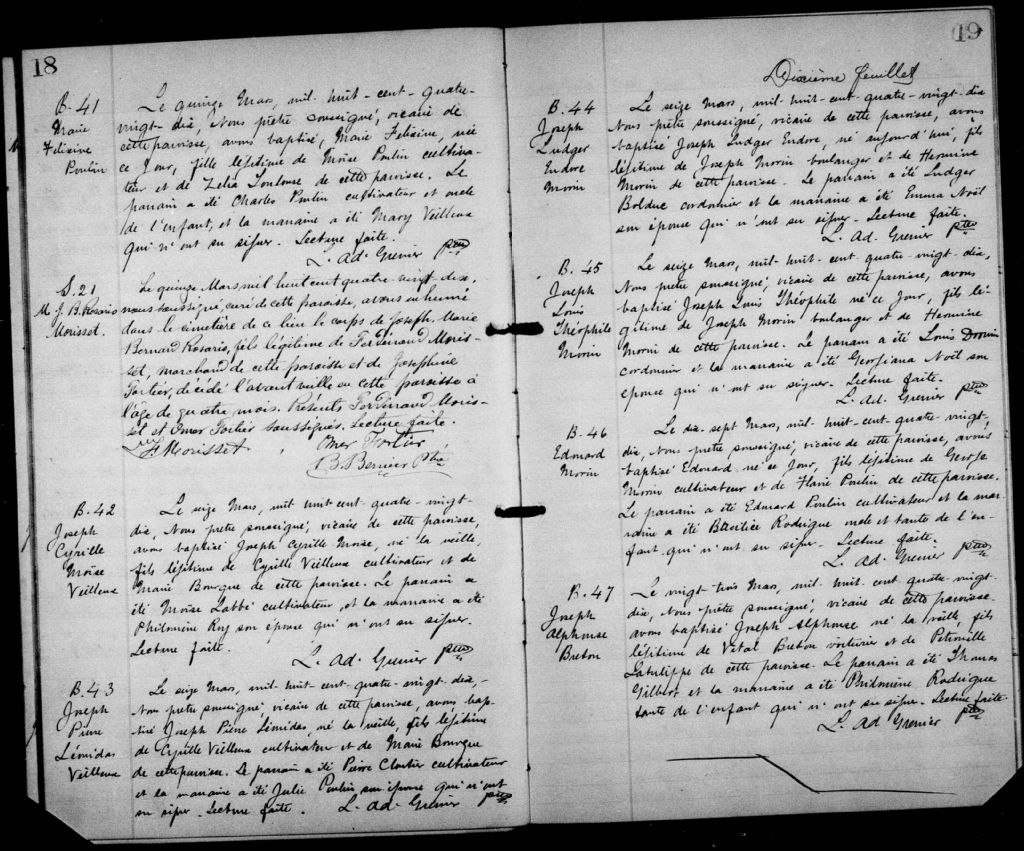 18
B. 41
Marie
Félixine
Poulin
Le quinze Mars, mil-huit-cent-quatre-
vingt-dix, Nous prêtre soussigné, vicaire de
cette paroisse, avons baptisé, Marie Félixine, née
ce jour, fille légitime de Moïse Poulin cultiva-
teur et de Zélia Toulouse de cette paroisse. Le
parrain a été Charles Poulin cultivateur et oncle
de l'enfant, et la marraine a été Mary Veilleux
qui n'ont su signer. Lecture faite.
L. Ad. Grenier ptre
S. 21
M. J. B. Rosario
Morisset.
Le quinze Mars, mil huit cent quatre vingt dix,
nous soussigné, curé de cette paroisse, avons inhumé
dans le cimetière de ce lieu le corps de Joseph, Marie
Bernard Rosario, fils légitime de Ferdinand Moris-
set, marchand de cette paroisse et de Joséphine
Fortier, décédé l'avant veille en cette paroisse à
l'âge de quatre mois. Présents Ferdinand Moris-
set et Omer Fortier soussignés. Lecture faite.
Morisset Omer Fortier
B. Bernier Ptre
B. 42
Joseph
Cyrille
Moïse
Veilleux
Le seize Mars, mil huit cent-quatre-vingt-
dix, Nous prêtre soussigné, vicaire de cette paroisse,
avons baptisé Joseph Cyrille Moïse, né la veille,
fils légitime de Cyrille Veilleux cultivateur et de
Marie Bourque de cette paroisse. Le parrain a
été Moïse Labbé cultivateur, et la marraine a été
Philomène Roy son épouse qui n'ont su signer.
Lecture faite.
L. Ad. Grenier ptre
B. 43
Joseph
Pierre
Léonidas
Veilleux
Le seize Mars, mil-huit-cent-quatre-vingt-dix,
Nous prêtre soussigné, vicaire de cette paroisse, avons bap-
tisé Joseph Pierre Léonidas, né la veille, fils légitime
de Cyrille Veilleux cultivateur et de Marie Bourque
de cette paroisse. Le parrain a été Pierre Cloutier cultivateur
et la marraine a été Julie Poulin son épouse qui n'ont
su signer. Lecture faite. L. Ad. Grenier ptre
19
Dixième feuillet
B. 44
Joseph
Ludger
Endore
Morin
Le seize Mars, mil-huit-cent-quatre-vingt-dix
Nous prêtre soussigné, vicaire de cette paroisse, avons
baptisé Joseph Ludger Endore, né aujourd'hui, fils
légitime de Joseph Morin boulanger et de Hermine
Morin de cette paroisse. Le parrain a été Ludger
Bolduc cordonnier et la marraine a été Emma Noël
son épouse qui n'ont su signer. Lecture faite.
L. Ad. Grenier ptre
B. 45
Joseph
Louis
Théophile
Morin
Le seize Mars, mil-huit-cent-quatre-vingt-dix,
Nous prêtre soussigné, vicaire de cette paroisse, avons
baptisé Joseph Louis Théophile né ce jour, fils lé-
gitime de Joseph Morin boulanger et de Hermine
Morin de cette paroisse. Le parrain a été Louis
cordonnier et la marraine a été Georgiana Noël son
épouse qui n'ont su signer. Lecture faite.
L. Ad. Grenier ptre
B. 46
Edouard
Morin
Le dix-sept Mars, mil-huit-cent-quatre-vingt-
dix, Nous prêtre soussigné, vicaire de cette paroisse, avons
baptisé Edouard né ce jour, fils légitime de George
Morin cultivateur et de Flavie Poulin de cette paroisse.
Le parrain a été Edouard Poulin cultivateur et la mar-
raine a été Basilice Rodrigue oncle et tante de l'en-
fant qui n'ont su signer. Lecture faite.
L. Ad. Grenier ptre
B. 47
Joseph
Alphonse
Breton
Le vingt-trois Mars, mil-huit-cent-quatre-vingt-
dix, Nous prêtre soussigné, vicaire de cette paroisse
avons baptisé Joseph Alphonse né la veille, fils
légitime de Vital Breton voiturier et de Pétronille
Latulippe de cette paroisse. Le parrain a été Thomas
Gilbert et la marraine a été Philomène Rodrigue
tante de l'enfant qui n'ont su signer. Lecture faite.
L. Ad. Grenier ptre